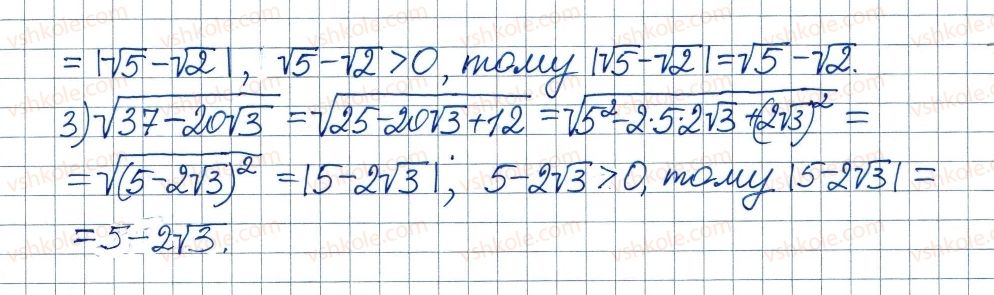 = |√5 − √2|; √5 − √2 > 0, тому |√5 − √2| = √5 − √2.
3) √(37 − 20√3) = √(25 − 20√3 + 12) = √(5² − 2·5·2√3 + (2√3)²) =
= √((5 − 2√3)²) = |5 − 2√3|; 5 − 2√3 > 0, тому |5 − 2√3| =
= 5 − 2√3.